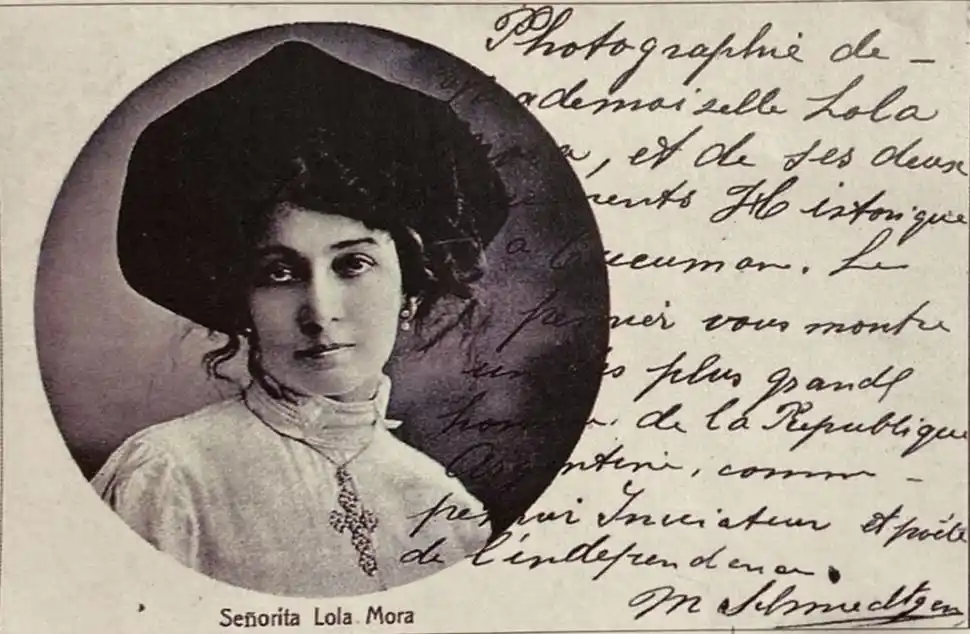 Photographie de -
ademoiselle Lola
a, et de ses deux
ments Historique
a Tucuman. Le
premier vous montre
un des plus grande
homme de la Republique
Argentine, comm -
premier Iniciateur et poéte
de l'independance.
M Schmedtgen
Señorita Lola Mora